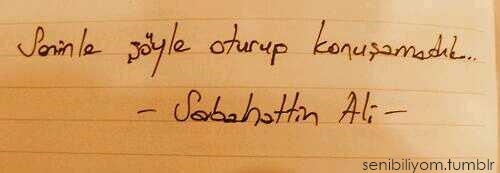 Seninle şöyle oturup konuşamadık..
- Sabahattin Ali -
senibiliyom.tumblr